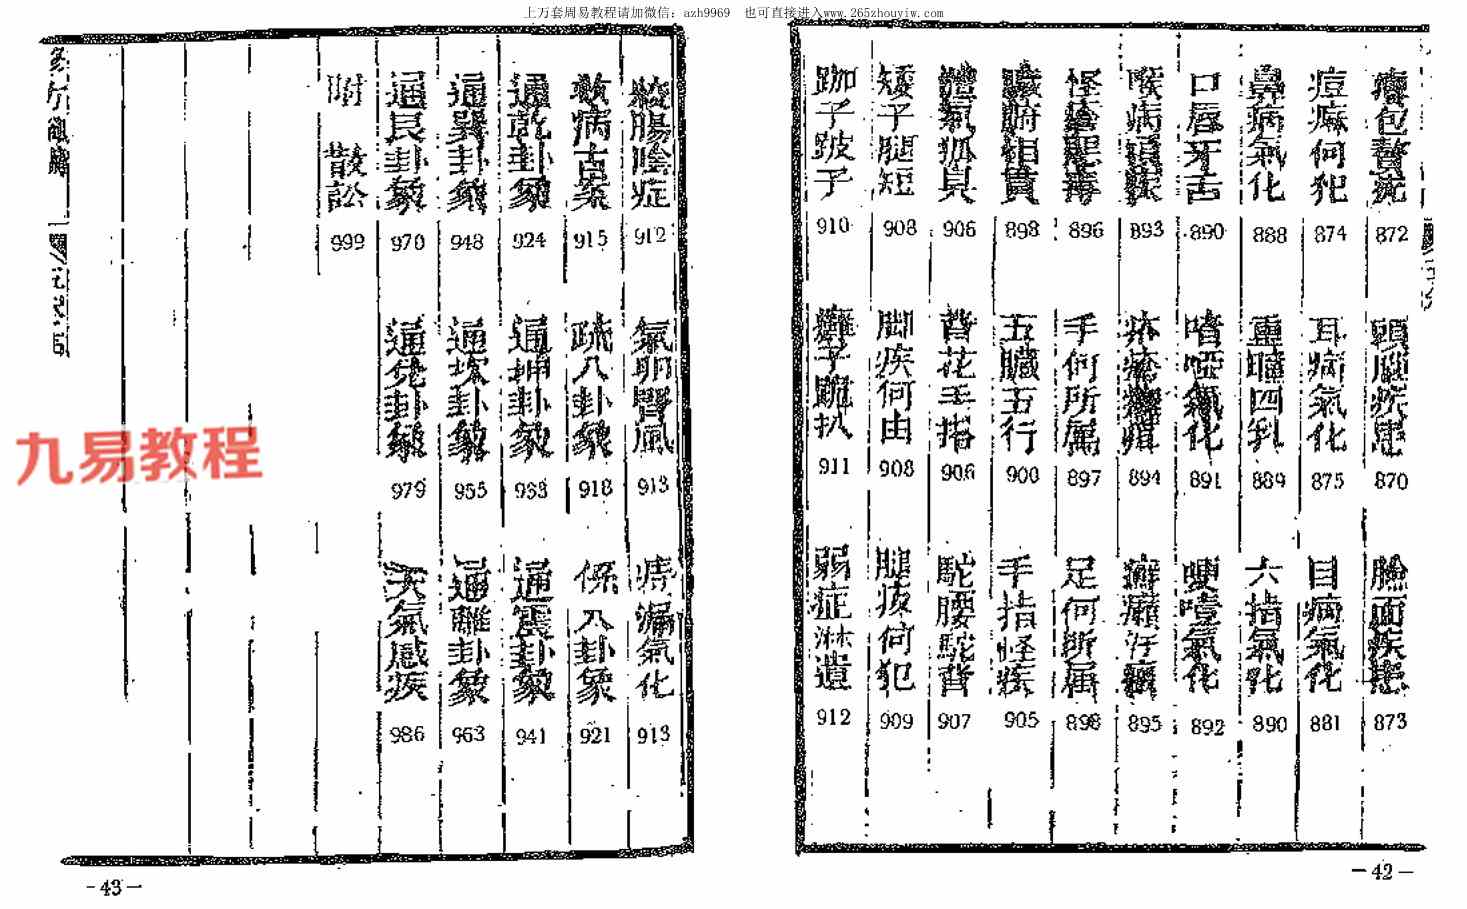 上万套周易教程请加微信：azh9969　也可直接进入www.265zhouyiw.com
瘡包贅疣 872
頭腦疾患 870
臉面疾患 873
痘痲何犯 874
耳病氣化 875
目病氣化 881
鼻病氣化 888
重瞳四乳 889
六指氣化 890
口唇牙舌 890
啞氣化 891
哽噎氣化 892
喉病頭 893
894
癬癩汗 895
怪瘡肥毒 896
手何所属 897
足何所属 898
臟腑相貫 898
五臟五行 900
手指怪疾 905
體氣狐臭 906
背花手指 906
駝腰駝背 907
矮子腿短 908
脚疾何由 908
腿疾何犯 909
跏子跛子 910
癱子跪扒 911
弱症淋遺 912
絞腸陰症 912
氣卵腎風 913
痔漏氣化 913
救病古案 915
疏八卦象 918
係八卦象 921
通乾卦象 924
通坤卦象 933
通震卦象 941
通巽卦象 948
通坎卦象 955
通離卦象 963
通艮卦象 970
通兌卦象 979
天氣感疾 986
附 散訟 999
九易教程
-43-
-42-